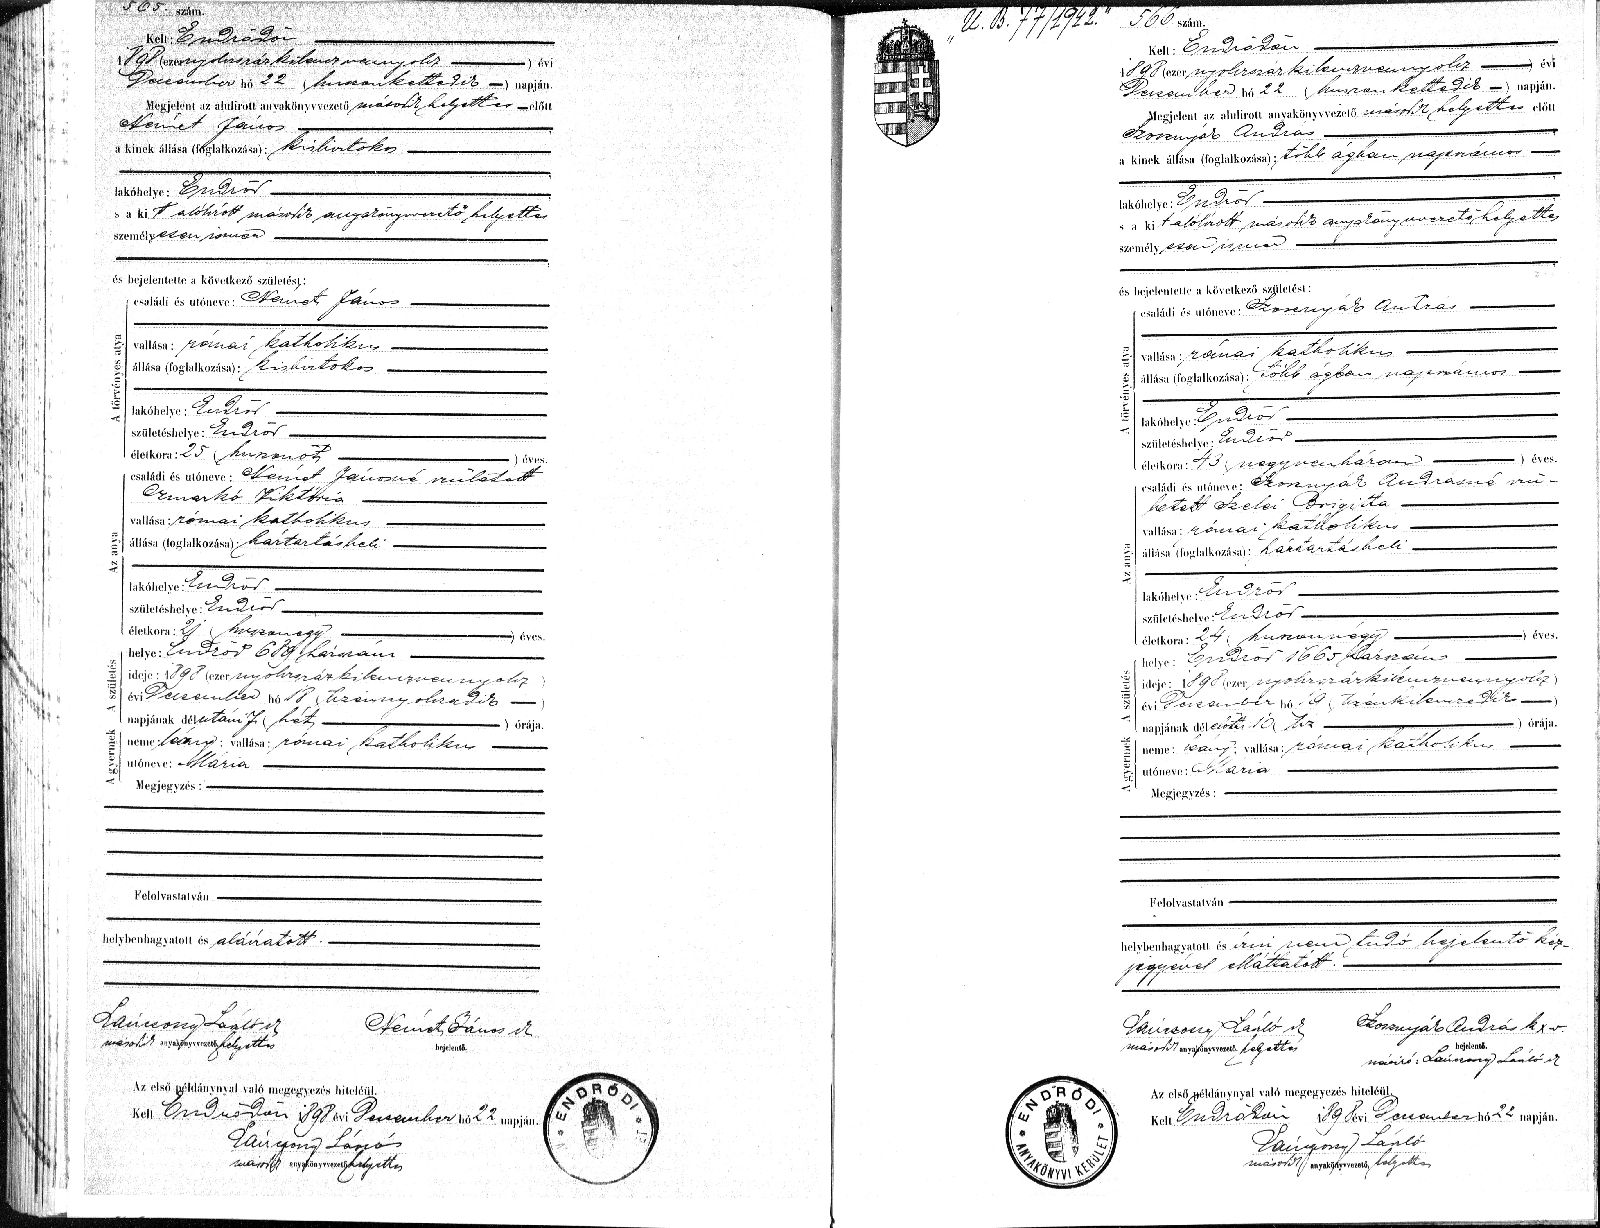 565. szám.
Kelt: Endrődön
1898 (ezer nyolczszázkilenczvennyolcz ) évi
Deczember hó 22 (huszonkettedik ) napján.
Megjelent az alulirott anyakönyvvezető második helyettes előtt
Német János
a kinek állása (foglalkozása): kisbirtokos
lakóhelye: Endrőd
s a kit alólirott második anyakönyvvezető helyettes
személyesen ismer
és bejelentette a következő születést:
A törvényes atya
családi és utóneve: Német János
vallása: római katholikus
állása (foglalkozása): kisbirtokos
lakóhelye: Endrőd
születéshelye: Endrőd
életkora: 25 (huszonöt ) éves.
Az anya
családi és utóneve: Német Jánosné született
Czmarkó Viktória
vallása: római katholikus
állása (foglalkozása): háztartásbeli
lakóhelye: Endrőd
születéshelye: Endrőd
életkora: 21 (huszonegy ) éves.
A születés
helye: Endrőd 689 házszám
ideje: 1898 (ezer nyolczszázkilenczvennyolcz )
évi Deczember hó 18 (tizennyolczadik )
napjának délutáni 7 (hét ) órája.
A gyermek
neme: leány; vallása: római katholikus
utóneve: Mária
Megjegyzés:
Felolvastatván
helybenhagyatott és aláiratott.
László sk
második anyakönyvvezető helyettes
Német János sk
bejelentő.
Az első példánynyal való megegyezés hiteléül.
Kelt Endrődön 1898 évi Deczember hó 22 napján.
második anyakönyvvezető helyettes
ENDRŐDI
"U. B. 77/1942."
566 szám.
Kelt: Endrődön
1898 (ezer nyolczszázkilenczvennyolcz ) évi
Deczember hó 22 (huszonkettedik ) napján.
Megjelent az alulirott anyakönyvvezető második helyettes előtt
Szosznyák András
a kinek állása (foglalkozása): több ágban napszámos
lakóhelye: Endrőd
s a kit alólirott második anyakönyvvezető helyettes
személyesen ismer
és bejelentette a következő születést:
A törvényes atya
családi és utóneve: Szosznyák András
vallása: római katholikus
állása (foglalkozása): több ágban napszámos
lakóhelye: Endrőd
születéshelye: Endrőd
életkora: 43 (negyvenhárom ) éves.
Az anya
családi és utóneve: Szosznyák Andrásné szü-
letett Szelei Brigitta
vallása: római katholikus
állása (foglalkozása): háztartásbeli
lakóhelye: Endrőd
születéshelye: Endrőd
életkora: 24 (huszonnégy ) éves.
A születés
helye: Endrőd 1665 házszám
ideje: 1898 (ezer nyolczszázkilenczvennyolcz)
évi Deczember hó 19 (tizenkilenczedik )
napjának délelőtti 10 (tíz ) órája.
A gyermek
neme: leány; vallása: római katholikus
utóneve: Mária
Megjegyzés:
Felolvastatván
helybenhagyatott és irni nem tudó bejelentő kéz-
jegyével elláttatott.
László sk
második anyakönyvvezető helyettes
Szosznyák András kxv.
bejelentő.
névíró: László sk
Az első példánynyal való megegyezés hiteléül
Kelt Endrődön 1898 évi Deczember hó 22 napján.
László
második anyakönyvvezető helyettes
ENDRŐDI
ANYAKÖNYVI KERÜLET